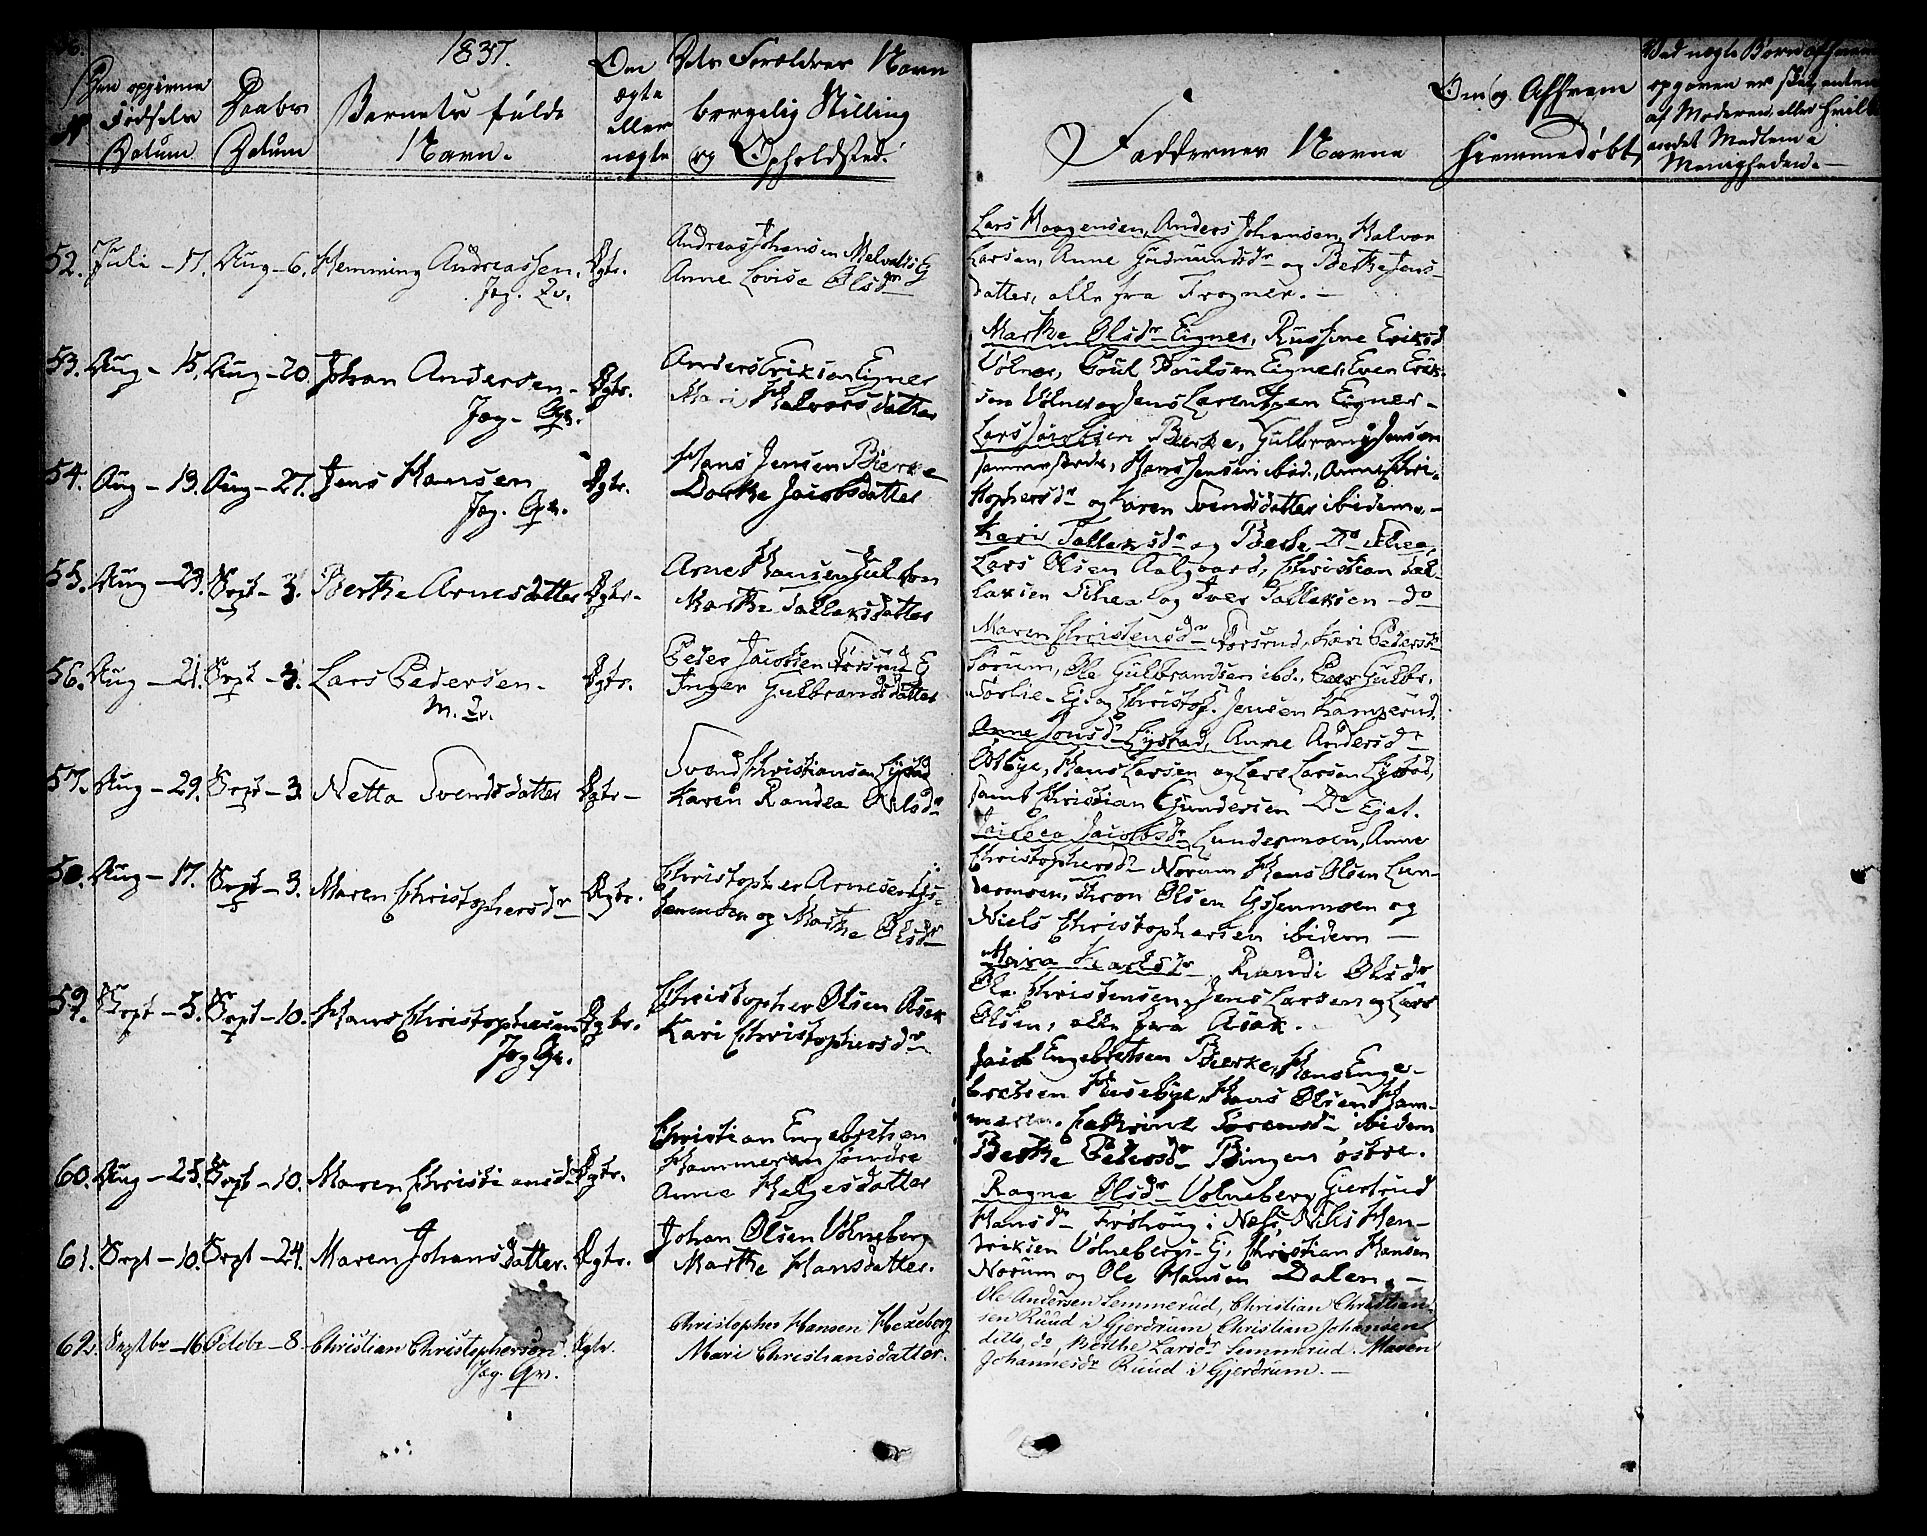 1837.
No
Den opgivne
Fødsels
Datum
Daabs
Datum
Barnets fulde
Navn.
Om
ægte
eller
uægte
Dets Forældres Navn
borgelig Stilling
og Opholdsted.
Faddernes Navne
Om og Af hvem
hiemmedøbt
Ved uægte Børn af hvem
opgaven er skeet, enten
af Moderen eller hvilke
andet Medlem i
Menigheden.
52. Juli - 17. Aug - 6. Hemming Andreassen. Ægte.
Jag. Qv.
Andreas Johansen Melvolds Ej
Anne Lovise Olsdr
Lars Haagensen, Anders Johansen, Halvor
Larsen, Anne Gudmundsdr og Berthe Jens-
datter, alle fra Frogner. -
53. Aug - 15. Aug - 20. Johan Andersen - Ægte.
Jag - Qv.
Anders Eriksen Eigner
Mari Halvorsdatter
Marthe Olsdr Eigner, Eriksd
Volner, Poul Poulsen Eigner, Even Erik-
sen Volner og Jens Larentzen Eigner -
54. Aug - 13. Aug - 27. Jens Hansen Ægte.
Jag. Qv.
Hans Jensen Bierke
Dorthe Jacobsdatter
Lars Bierke, Gulbrand Jensen
sammesteds, Hans Jensen ibid., Anne Chri-
stophersdr og Karen Svendsdatter ibidem. -
55. Aug - 23. Sept - 3. Berthe Arnesdatter Ægte -
Arne Hansen
Marthe Tallaksdatter
Kari Tallaksdr og Berthe Do
Lars Olsen Aalgaard, Christian Tal-
laksen og Iver Tallaksen - do
56. Aug - 21. Sept - 3. Lars Pedersen - Ægte.
M. Qv.
Peder Jacobsen Forsrud Ej
Inger Gulbrandsdatter
Maren Christensdr Forsrud, Kari Pedersdr
Sørum, Ole Gulbrandsen ibd., Gulbr.
Sørlie - Ej. og Christop. Jensen Kamperud
57. Aug - 29. Sept - 3 Netta Svendsdatter Ægte -
Svend Christiansen Lystad
Karen Randea Nilsdr
Anne Jonsdr Lystad, Anne Andersdr
Østbye, Hans Larsen og Lars Larsen Lystad,
samt Christian Gundersen Do Ejet.
58. Aug - 17. Sept - 3. Maren Christophersdr Ægte.
Christopher Arnesen
og Marthe Olsdr
Jacobsdr Lundermoen, Anne
Christophersdr Norum Hans Olsen Lun-
dermoen, Thron Olsen og
Niels Christophersen ibidem -
59. Sept - 5. Sept - 10. Hans Christophersen Ægte.
Jag Qv.
Christopher Olsen Asak
Kari Christophersdr
Randi Olsdr
Ole Christensen, Jens Larsen og Lars
Olsen, alle fra Asak. -
60. Aug - 25. Sept - 10. Maren Christiansdr Ægte.
Christian Engebretsen
Hammeren søndre
Anne Helgesdatter
Jacob Engebretsen Bierke, Hans Enge-
bretsen Husebye, Hans Olsen Ham-
meren. Cathrine Sørensdr ibidem
Berthe Pedersdr Bingen østre.
61. Sept - 10. Sept - 24. Maren Johansdatter. Ægte.
Johan Olsen Volneberg
Marthe Hansdatter.
Ragne Olsdr Volneberg, Giertrud
Hansdr Frøhoug i Næs, Nils Hen-
driksen Volnebergs - Ej, Christian Hansen
Norum og Ole Hansen Dalen. -
62. Septbr - 16 Octobr - 8 - Christian Christophersen Ægte.
Jag. Qv.
Christopher Hansen Hexeberg
Mari Christiansdatter.
Ole Andersen Lemmerud, Christian Christian-
sen Ruud i Gjerdrum Christian Johansen
ditto do, Berthe Larsdr Lemmerud. Maren
Johannesdr Ruud i Gjerdrum. -